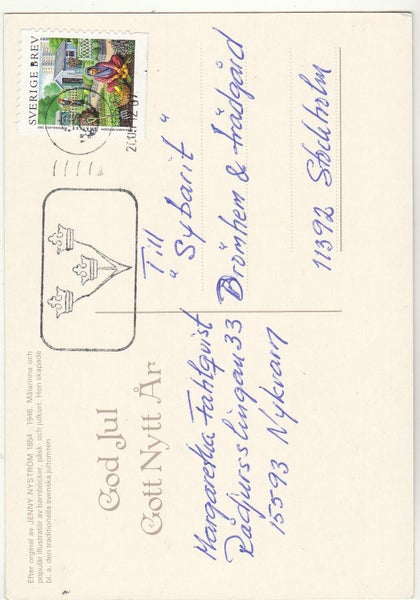 Efter orginal av JENNY NYSTRÖM 1854 - 1946. Målarinna och
populär illustratör av barnböcker, påsk och julkort. Hon skapade
bl. a. den traditionella svenska jultomten.
God Jul
Gott Nytt År
Margaretha Fahlquist
Rådjursslingan 33
15593 Nykvarn
SVERIGE BREV
Till
"Sybarit"
Drömhem & trädgård
11392 Stockholm